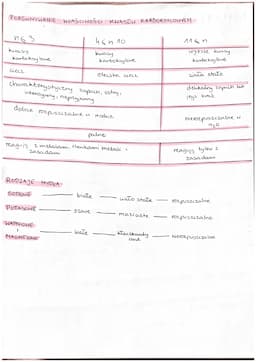 PORÓWNANIE WŁAŚCIWOŚCI KWASÓW KARBOKSYLOWYCH
n ≤ 3
4 ≤ n ≤ 10
11 ≤ n
kwasy karboksylowe
kwasy karboksylowe
wyższe kwasy karboksylowe
ciecz
oleista ciecz
ciała stałe
charakterystyczny zapach, ostry,
delikatny zapach lub
jego brak
dobrze rozpuszczalne w wodzie
nierozpuszczalne w
palne
reagują z metalami, tlenkami metali i
zasadami
reagują tylko z
zasadami
RODZAJE MYDŁA:
SODOWE — białe — ciało stałe — rozpuszczalne
POTASOWE — szare — maziste — rozpuszczalne
WAPNIOWE
i
MAGNEZOWE — białe — kłaczkowaty osad — nierozpuszczalne